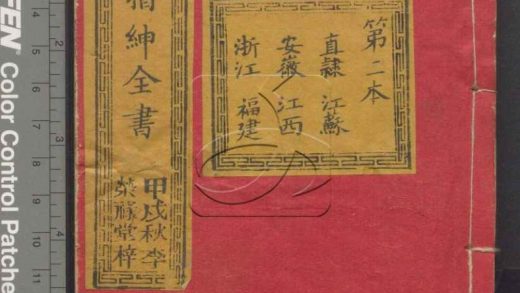 第二本
直隸 江蘇
安徽 江西
浙江 福建
紳全書
甲戌秋季
榮祿堂梓
Color Control Patche